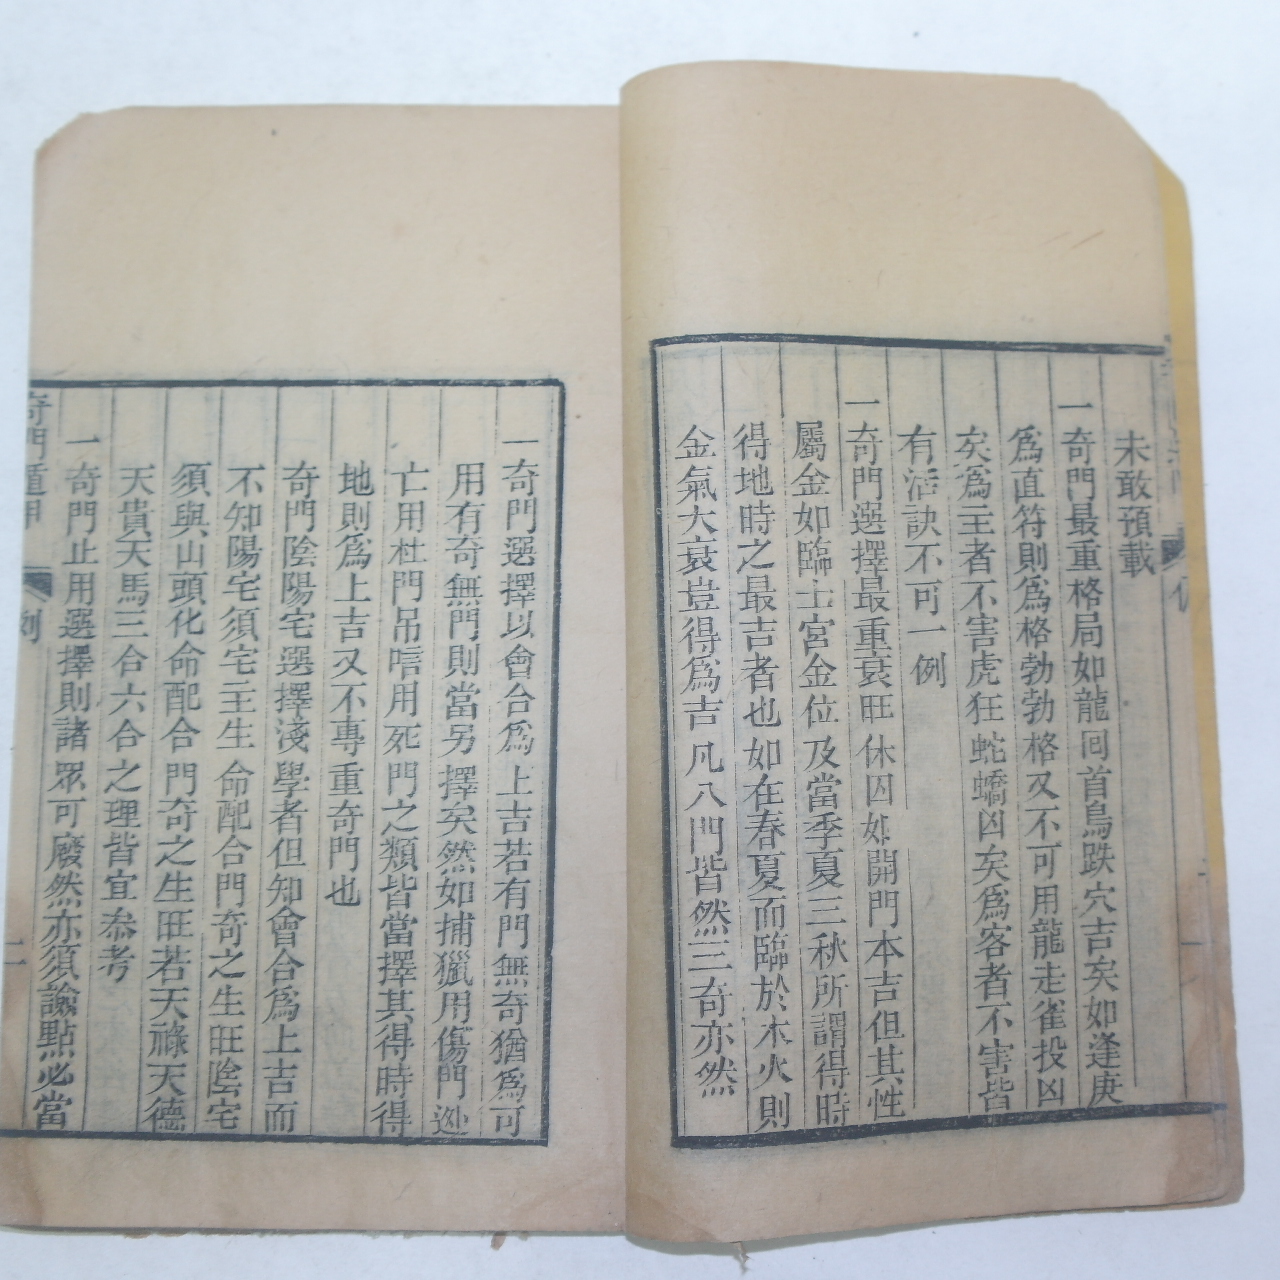 未敢預載
一奇門最重格局如龍囘首鳥跌穴吉矣如逢庚
爲直符則爲格勃勃格又不可用龍走雀投凶
矣爲主者不害虎狂蛇蟜凶矣爲客者不害皆
有活訣不可一例
一奇門選擇最重衰旺休囚如開門本吉但其性
屬金如臨土宮金位及當季夏三秋所謂得時
得地時之最吉者也如在春夏而臨於木火則
金氣大衰豈得爲吉凡八門皆然三奇亦然
一奇門選擇以會合爲上吉若有門無奇猶爲可
用有奇無門則當另擇矣然如捕獵用傷門逃
亡用杜門吊唁用死門之類皆當擇其得時得
地則爲上吉又不專重奇門也
奇門陰陽宅選擇淺學者但知會合爲上吉而
不知陽宅須宅主生命配合門奇之生旺陰宅
須與山頭化命配合門奇之生旺若天祿天德
天貴天馬三合六合之理皆宜叅考
一奇門止用選擇則諸眾可廢然亦須論點必當
奇門遁甲
二